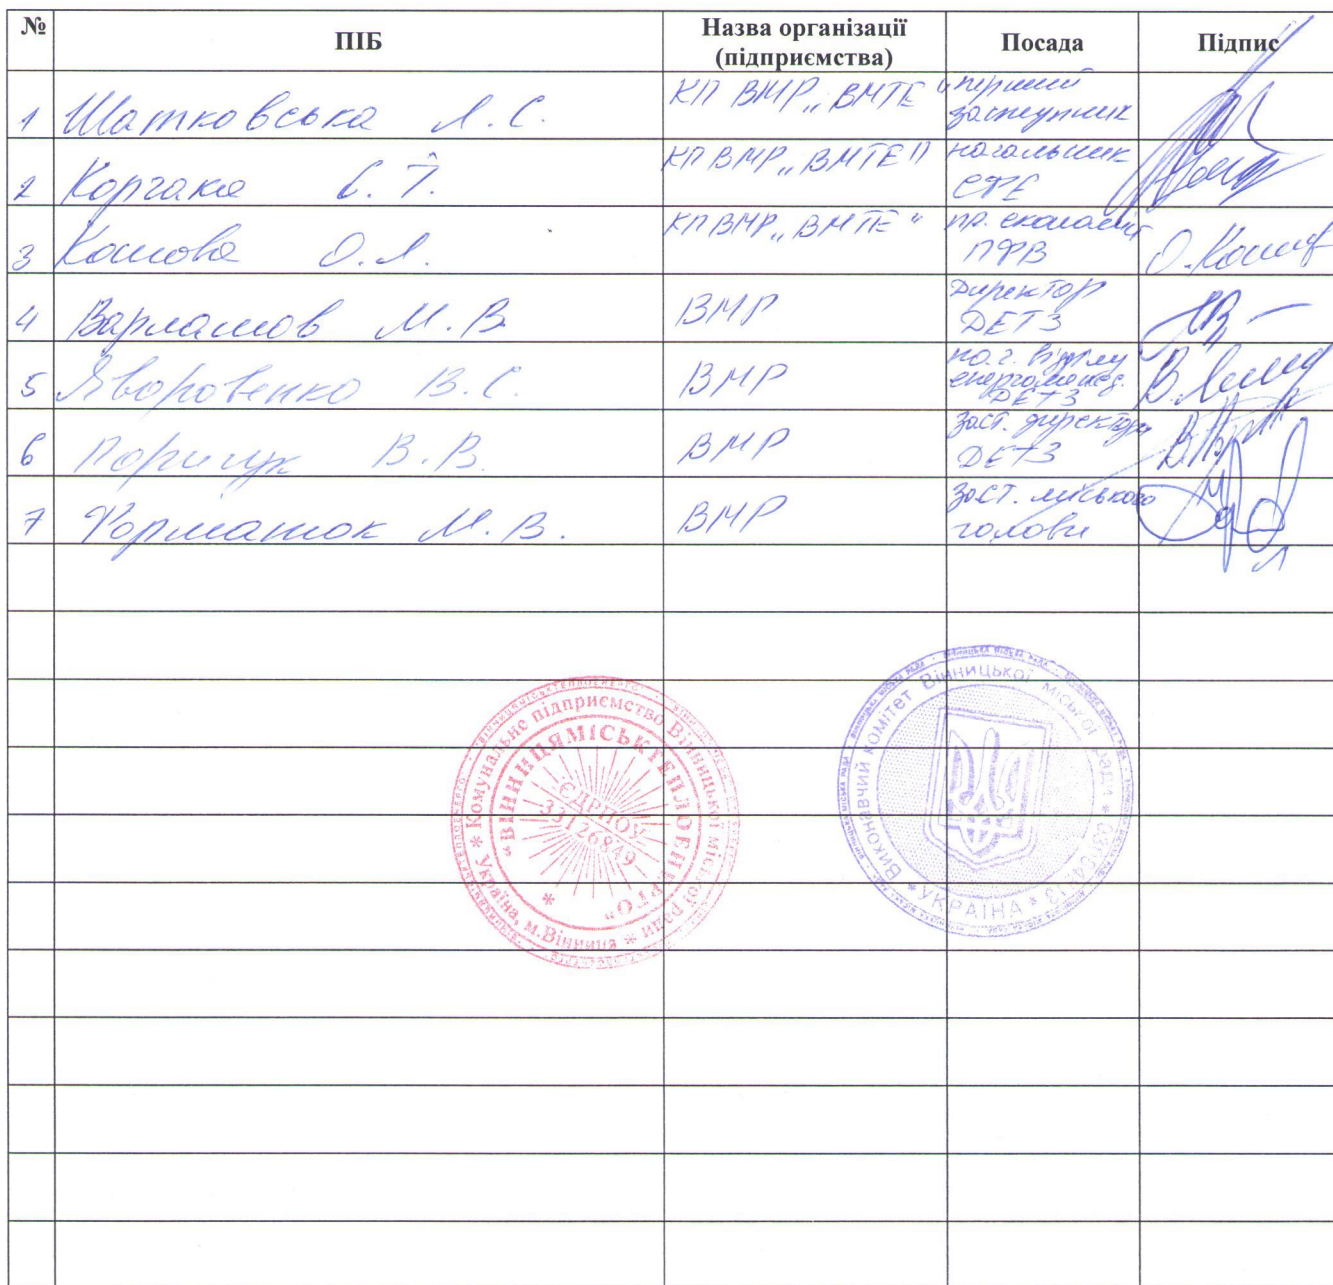 № ПІБ Назва організації (підприємства) Посада Підпис
1 Шатковська Л. С. КП ВМР „ВМТЕ“ перший заступник
2 Корчака С. Т. КП ВМР „ВМТЕ" начальник СТЕ
3 О.Л. КП ВМР „ВМТЕ“ пр. економіст ПФВ
4 Варламов М. В. ВМР Директор ДЕТЗ
5 Яворовенко В. С. ВМР нач. відділу енергоменедж. ДЕТЗ
6 Порищук В. В. ВМР заст. директора ДЕТЗ
7 Форманюк М. В. ВМР заст. міського голови
* Комунальне підприємство Вінницької міської ради * Україна, м.Вінниця
"ВІННИЦЯМІСЬКТЕПЛОЕНЕРГО"
ЄДРПОУ
33126849
Виконавчий комітет Вінницької міської ради
* УКРАЇНА *